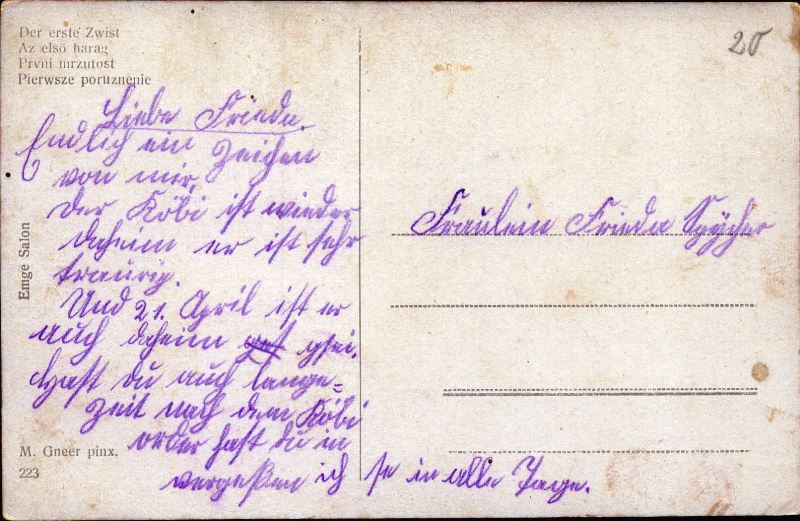 Der erste Zwist
Az elsö harag
Prvni mrzutost
Pierwsze poruznenie
20
Liebe Frieda.
Endlich ein Zeichen
von mir.
Der Köbi ist wieder
daheim er ist sehr
traurig.
Und 21. April ist er
auch daheim gsei.
Hast du auch lange=
zeit nach dem Köbi
order hast du in
vergeßen ich se in alle Tage.
Fräulein Frieda Spycher
Emge Salon
M. Gneer pinx.
223